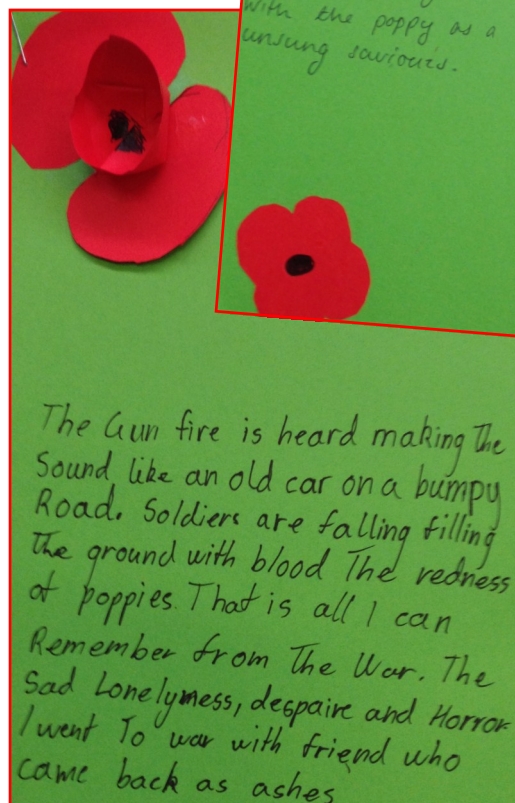 with the poppy as a
unsung saviours.
The Gun fire is heard making The
Sound like an old car on a bumpy
Road. Soldiers are falling filling
The ground with blood The redness
of poppies. That is all I can
Remember from The War. The
Sad Lonelymess, despaire and Horror
I went To war with friend who
came back as ashes